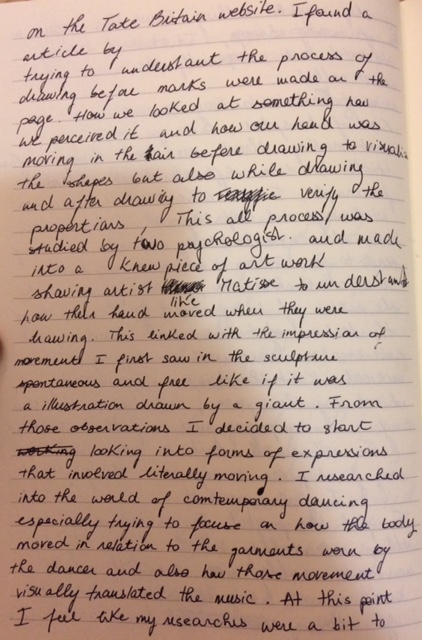 on the Tate Britain website. I found a
article by
trying to understant the process of
drawing before marks were made on the
page. How we looked at something how
we perceived it and how our hand was
moving in the air before drawing to visualis
the shapes but also while drawing
and after drawing to verify the
proportions, This all process was
studied by two psychologist. and made
into a knew piece of art work
shaving artist like Matisse to understand
how their hand moved when they were
drawing. This linked with the impression of
movement I first saw in the sculpture
spontaneous and free like if it was
a illustration drawn by a giant. From
those observations I decided to start
working looking into forms of expressions
that involved literally moving. I researched
into the world of comtemporary dancing
especially trying to focuse on how the body
moved in relation to the garments worn by
the dancer and also how those movement
visually translated the music. At this point
I feel like my researches were a bit to